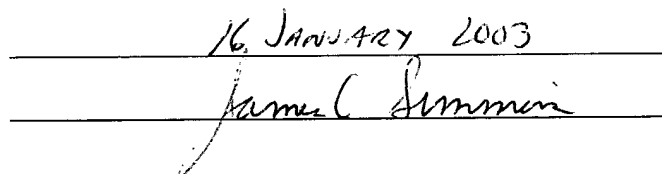 16 JANUARY 2003
James C Simmons